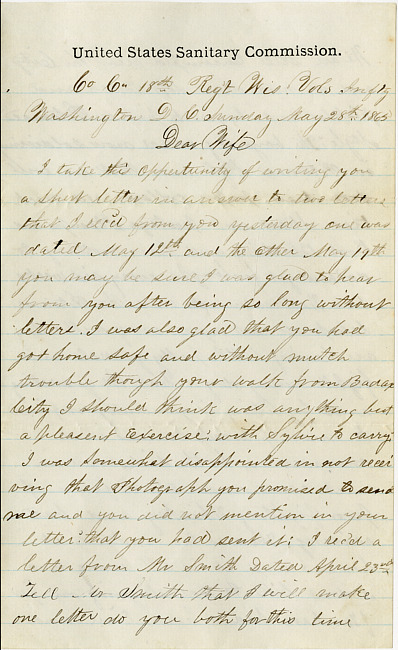 United States Sanitary Commission.
Co C" 18th Regt Wis. Vols Infty
Washington D. C. Sunday May 28th 1865
Dear Wife
I take this opportunity of writing you
a short letter in answer to two letters
that I rec'd from you yesterday one was
dated May 12th and the other May 19th
you may be sure I was glad to hear
from you after being so long without
letters. I was also glad that you had
got home safe and without mutch
trouble though your walk from Badax
City I should think was anything but
a pleasent Exercise: with Sylvie to carry
I was somewhat disappointed in not recei
ving that Photograph you promised to send
me and you did not mention in your
letter: that you had sent it: I rec'd a
letter from Mr Smith Dated April 23rd
Tell Mr Smith that I will make
one letter do you both for this time